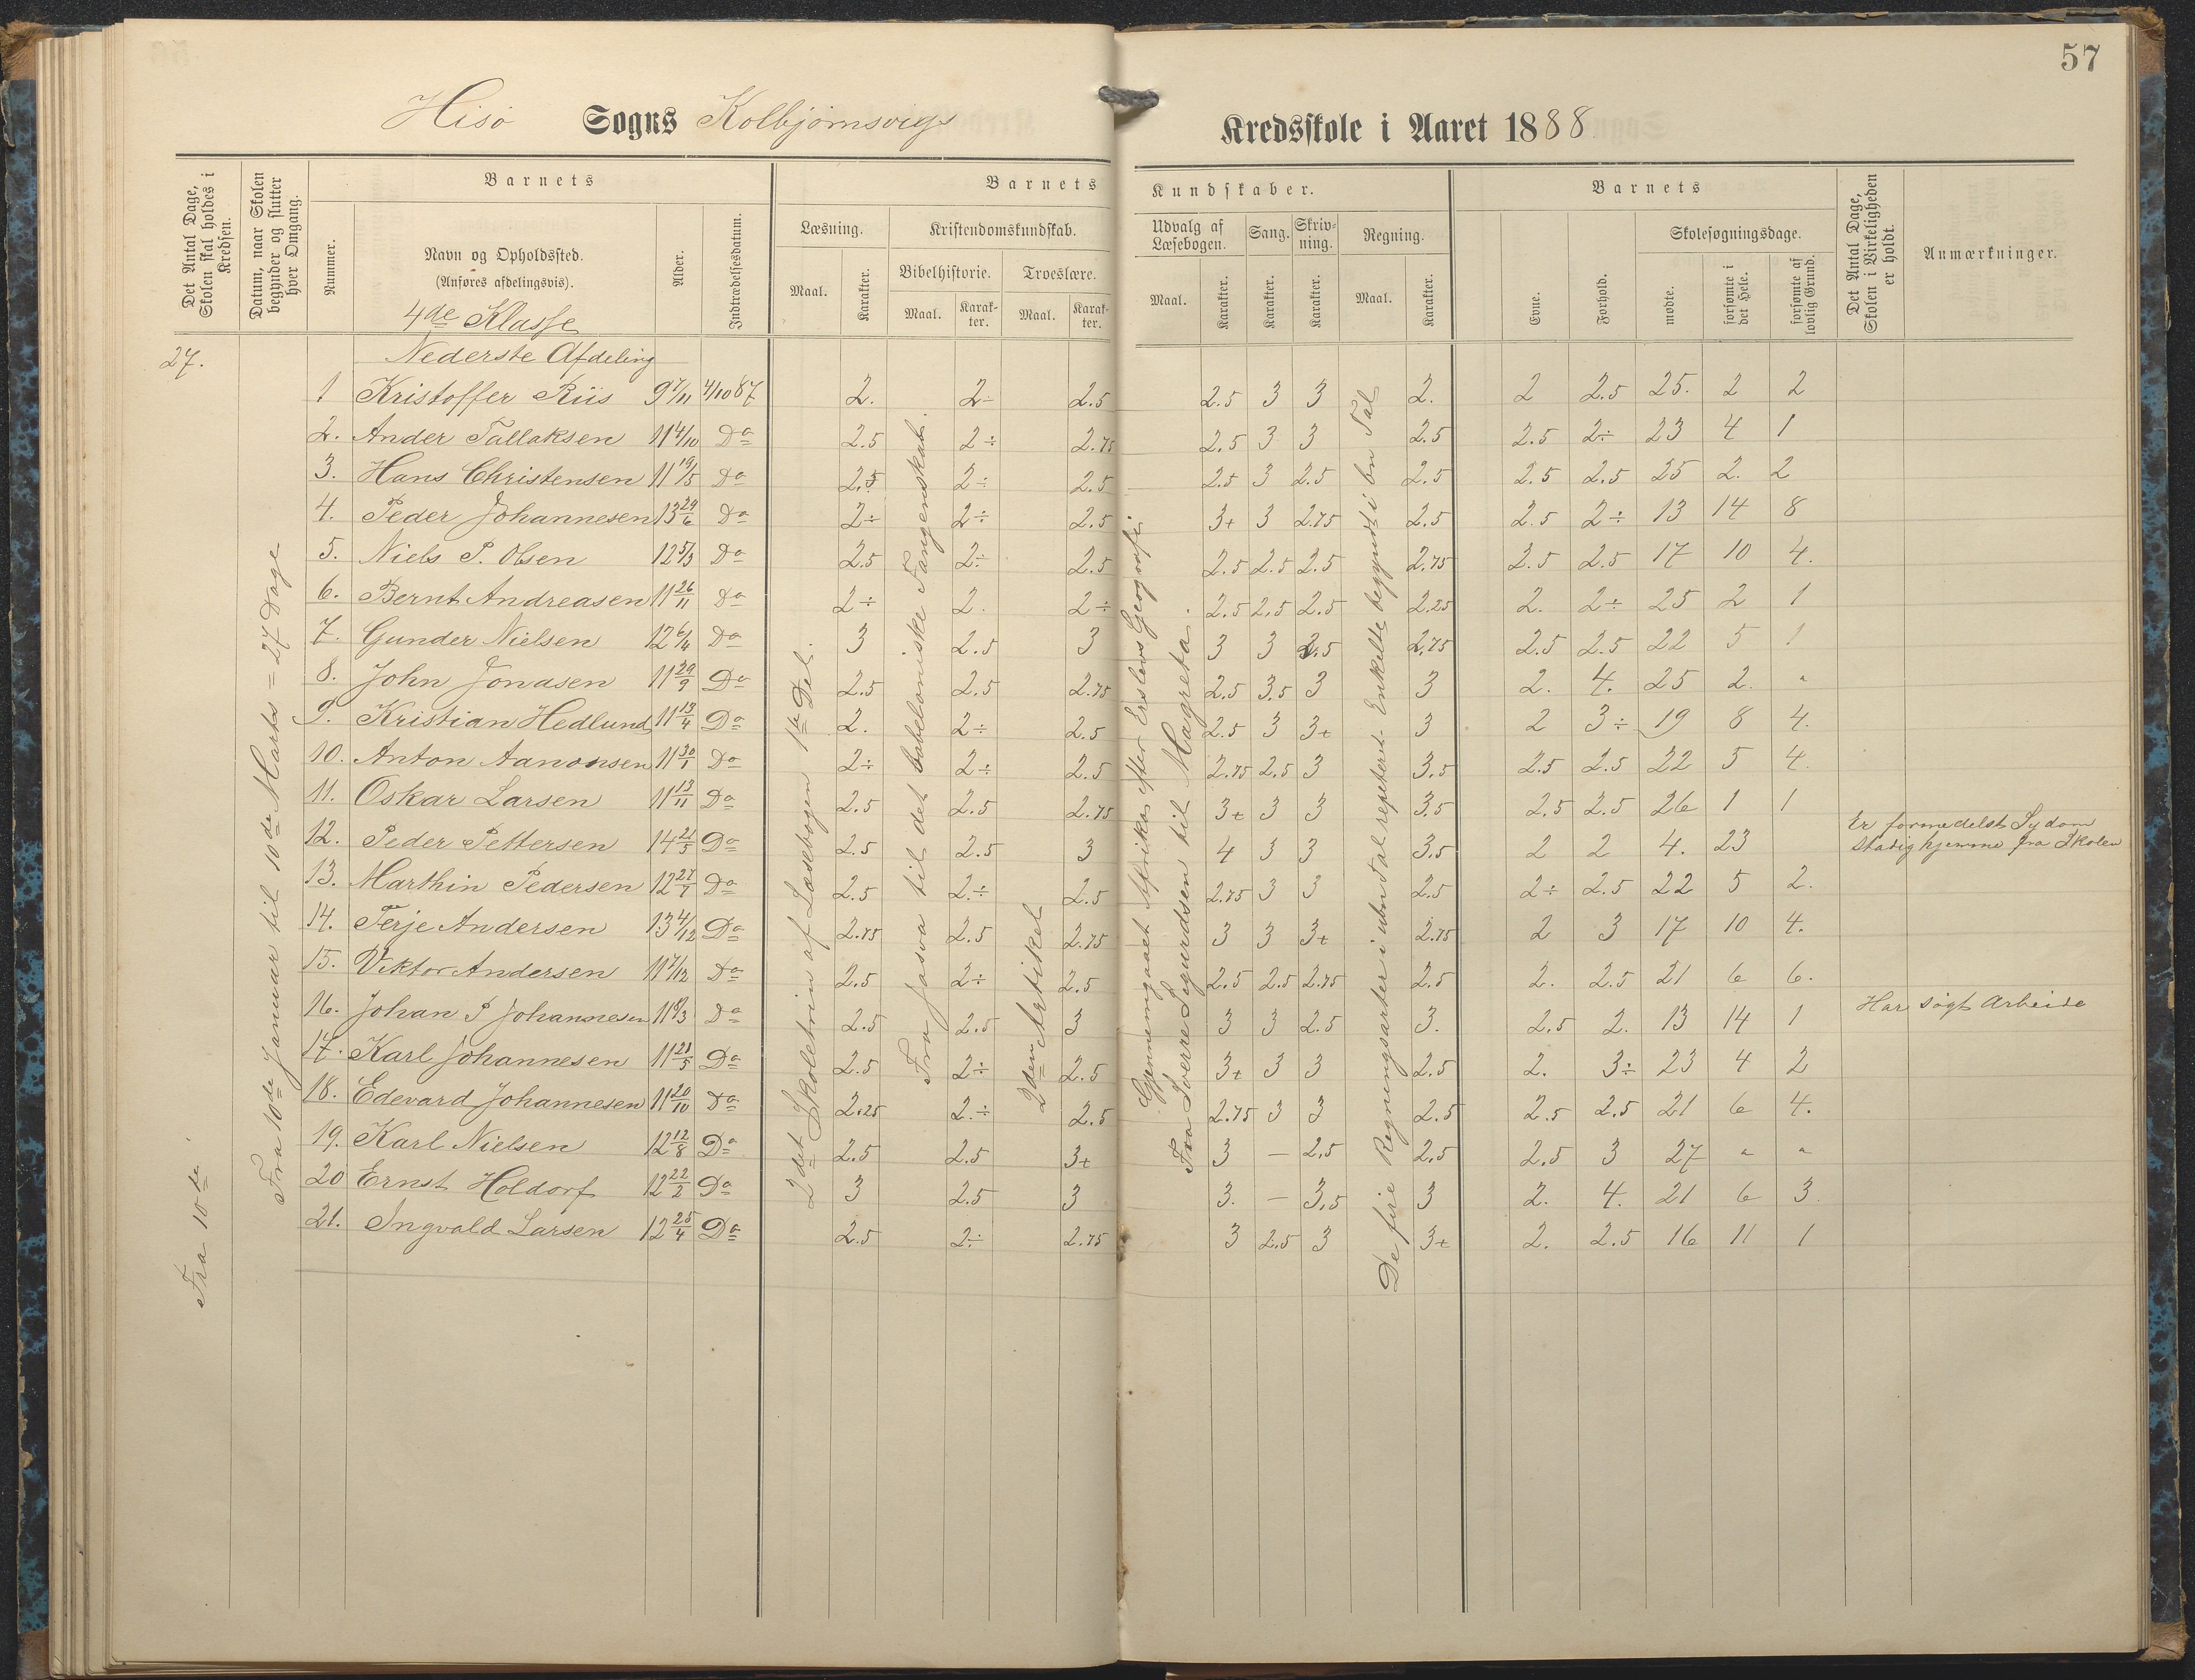 57
Hisö Sogns Kolbjörnsvigs Kredsskole i Aaret 1888
Det Antal Dage, Skolen skal holdes i Kredsen.
Datum, naar Skolen begynder og slutter hver Omgang.
Barnets
Nummer.
Navn og Opholdssted.
(Anføres afdelingsvis).
Alder.
Indtrædelsesdatum.
Barnets Kundskaber.
Læsning.
Maal.
Karakter.
Kristendomskundskab.
Bibelhistorie.
Maal.
Karakter.
Troeslære.
Maal.
Karakter.
Udvalg af Læsebogen.
Maal.
Karakter.
Sang.
Karakter.
Skrivning.
Karakter.
Regning.
Maal.
Karakter.
Barnets
Evne.
Forhold.
Skolesøgningsdage.
mødte.
forsømte i det Hele.
forsømte af lovlig Grund.
Det Antal Dage, Skolen i Virkeligheden er holdt.
Anmærkninger.
4de Klasse
27. Nederste Afdeling
1 Kristoffer Riis 9 7/11 4/10 87 2. 2÷ 2.5 2.5 3 3 2. 2 2.5 25. 2 2
2. Ander Tallaksen 11 4/10 Do 2.5 2÷ 2.75 2.5 3 3 2.5 2.5 2÷ 23 4 1
3. Hans Christensen 11 19/5 Do 2.5 2÷ 2.5 2+ 3 2.5 2.5 2.5 2.5 25 2. 2
4. Peder Johannesen 13 24/6 Do 2÷ 2÷ 2.5 3+ 3 2.75 2.5 2.5 2÷ 13 14 8
5. Niels P. Olsen 12 5/3 Do 2.5 2÷ 2.5 2.5 2.5 2.5 2.75 2.5 2.5 17 10 4.
6. Bernt Andreasen 11 26/11 Do 2÷ 2. 2÷ 2.5 2.5 2.5 2.25 2. 2÷ 25 2 1
7. Gunder Nielsen 12 6/4 Do 3 2.5 3 3 3 2.5 2.75 2.5 2.5 22 5 1
8. John Jonasen 11 29/9 Do 2.5 2.5 2.75 2.5 3.5 3 3 2. 4. 25 2. "
9. Kristian Hedlund 11 13/4 Do 2. 2÷ 2.5 2.5 3 3+ 3 2 3÷ 19 8 4.
10. Anton Aanonsen 11 30/1 Do 2÷ 2÷ 2.5 2.75 2.5 3 3.5 2.5 2.5 22 5 4
11. Oskar Larsen 11 13/11 Do 2.5 2.5 2.75 3+ 3 3 3.5 2.5 2.5 26 1 1
12. Peder Pettersen 14 21/5 Do 2.5 2.5 3 4 3 3 3.5 2 2 4. 23 Er formedelst Sydom
stadig hjemme fra Skolen
13. Marthin Pedersen 12 27/7 Do 2.5 2÷ 2.5 2.75 3 3 2.5 2÷ 2.5 22 5 2.
14. Terje Andersen 13 4/12 Do 2.75 2.5 2.75 3 3 3+ 2.75 2 3 17 10 4.
15. Viktor Andersen 11 7/12 Do 2.5 2÷ 2.5 2.5 2.5 2.75 2.5 2. 2.5 21 6 6.
16. Johan P Johannesen 11 8/3 Do 2.5 2.5 3 3 3 2.5 3. 2.5 2. 13 14 1 Har søgt Arbeide
17. Karl Johannesen 11 21/5 Do 2.5 2÷ 2.5 3+ 3 3 2.5 2. 3÷ 23 4 2
18. Edevard Johannesen 11 20/10 Do 2.25 2.÷ 2.5 2.75 3 3 2.5 2.5 2.5 21 6 4.
19. Karl Nielsen 12 12/8 Do 2.5 2.5 3+ 3 — 2.5 2.5 2.5 3 27 " "
20 Ernst Holdorf 12 22/2 Do 3 2.5 3 3. — 3.5 3 2. 4. 21 6 3.
21. Ingvald Larsen 12 25/4 Do 2.5 2÷ 2.75 3 2.5 3 3+ 2. 2.5 16 11 1
Fra 10de
Fra 10de Januar til 10de Marts = 27 Dage
2det Skoletrin af Læsebogen 1ste Del.
Fra Josva til det babeloniske Fangenskab.
2den Artikel
Gjennemgaaet Afrika efter Erslevs Geografi.
Fra Sverre Sigurdsen til Magreta.
De fire Regningsarter i ubn Tal repeteret. Enkelte begyndt i bn Tal